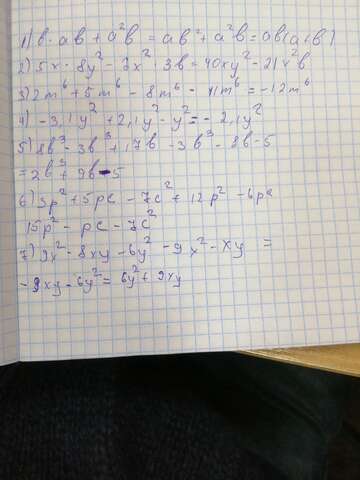 1) b · ab + a²b = ab² + a²b = ab(a+b)
2) 5x · 8y² - 7x² · 3b = 40xy² - 21x²b
3) 2m⁶ + 5m⁶ - 8m⁶ - 11m⁶ = -12m⁶
4) -3,1y² + 2,1y² - y² = - 2,1y²
5) 8b³ - 3b³ + 17b - 3b³ - 8b - 5
= 2b³ + 9b - 5
6) 3p² + 5pc - 7c² + 12p² - 6pc
15p² - pc - 7c²
7) 9x² - 8xy - 6y² - 9x² - xy =
- 9xy - 6y² = 6y² + 9xy